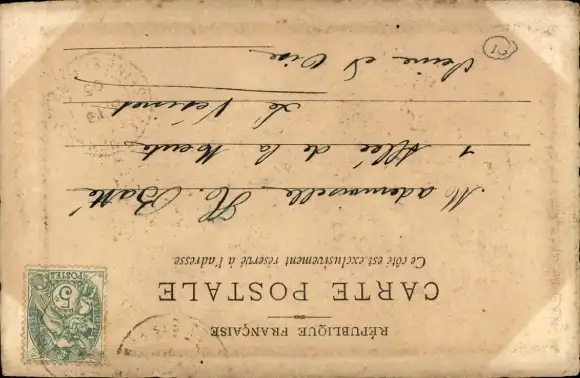 RÉPUBLIQUE FRANÇAISE
CARTE POSTALE
Ce côté est exclusivement réservé à l'adresse
POSTES
5c
Mademoiselle H. Batté
1 Allée de la Meute
Le Vésinet
Seine et Oise